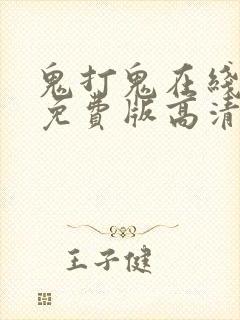 鬼打鬼在线
免费版高清
王子健